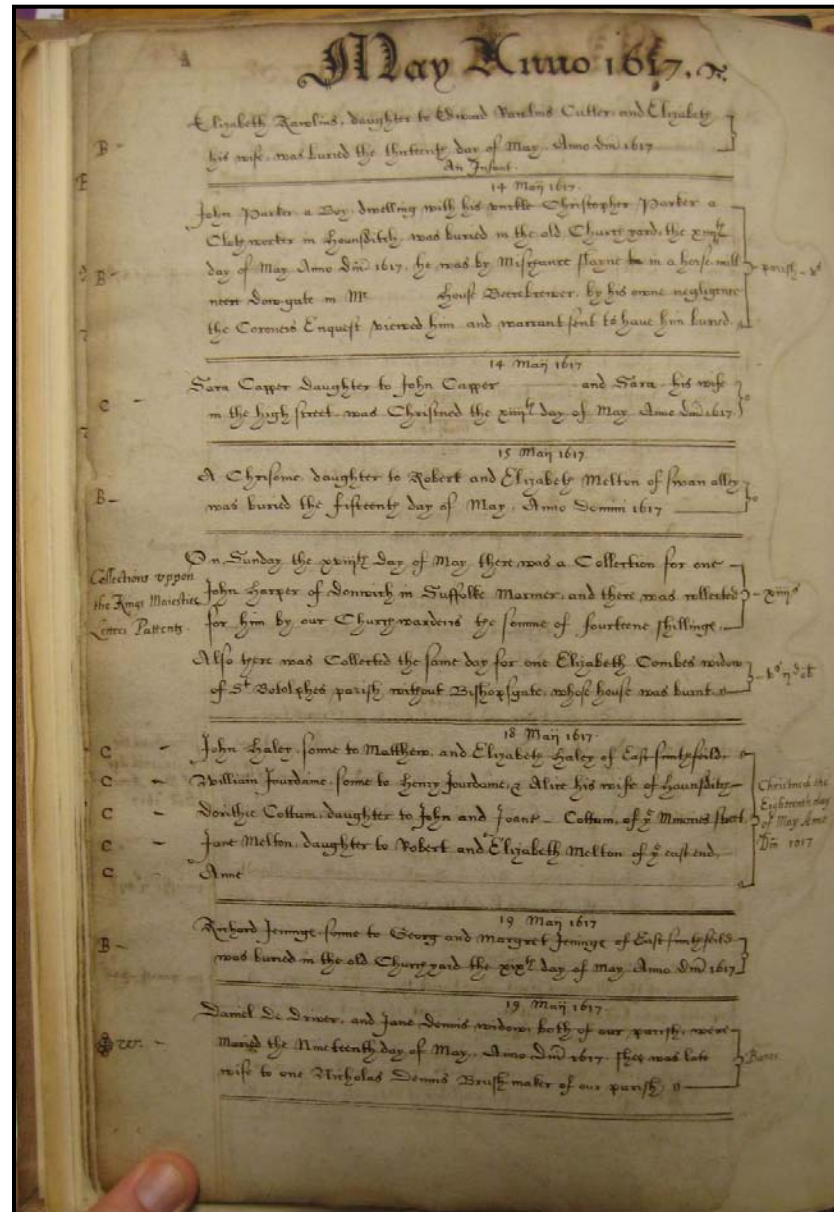 May Anno 1617.
Elizabeth Rawlins, daughter to Edward Rawlins Cutler, and Elizabeth
B - his wife, was buried the thirteenth day of May. Anno dm̄ 1617
An Infant.
14 Maij 1617.
John Parker a Boy, dwelling with his unckle Christopher Parker a
Cloth worker in Hounsditch, was buried in the old Churchyard, the xiiijth
B - day of May Anno Dm̄ 1617, he was by Mischance slayne in a horse mill parish -
neere Dowgate in Mr House Beerebrewer, by his owne negligence
the Coroners Enquest viewed him and warrant sent to have him buried.
14 Maij 1617
Sara Capper daughter to John Capper and Sara his wife
C - in the high street was Christned the xiiijth day of May Anno dm̄ 1617.
15 Maij 1617
A Chrisome daughter to Robert and Elizabeth Melton of swan alley
B - was buried the fifteenth day of May. Anno Domini 1617
On Sunday the xviijth Day of May there was a Collection for one
Collections uppon
the Kings Maiesties
Letters Pattents.
John Harper of Donwich in Suffolke Marriner, and there was collected - xiiijs
for him by our Churchwardens the somme of fourteene shillinge.
Also there was Collected the same day for one Elizabeth Combes widow
of St Botolphes parish without Bishopsgate, whose house was burnt.
18 Maij 1617.
C - John Haley, sonne to Matthew, and Elizabeth Haley of East-smithfeild,
C - William Jourdaine, sonne to Henry Jourdaine, & Alice his wife of Hounsditch
C - Dorithie Cottum, daughter to John and Joane Cottum, of ye Minories street,
C - Jane Melton, daughter to Robert and Elizabeth Melton of ye east end,
C - Anne
Christned the
Eighteenth day
of May Anno
Dm̄ 1617
19 Maij 1617
Richard Jeninge, sonne to Georg and Margret Jeninge of East-smithfeild
B - was buried in the old Churchyard the xixth day of May Anno dm̄ 1617
19 Maij 1617.
Daniel De Driver, and Jane Dennis widow, both of our parish, were
maried the Nineteenth day of May, Anno Dm̄ 1617. shee was late Banes
wife to one Nicholas Dennis Brush maker of our parish,